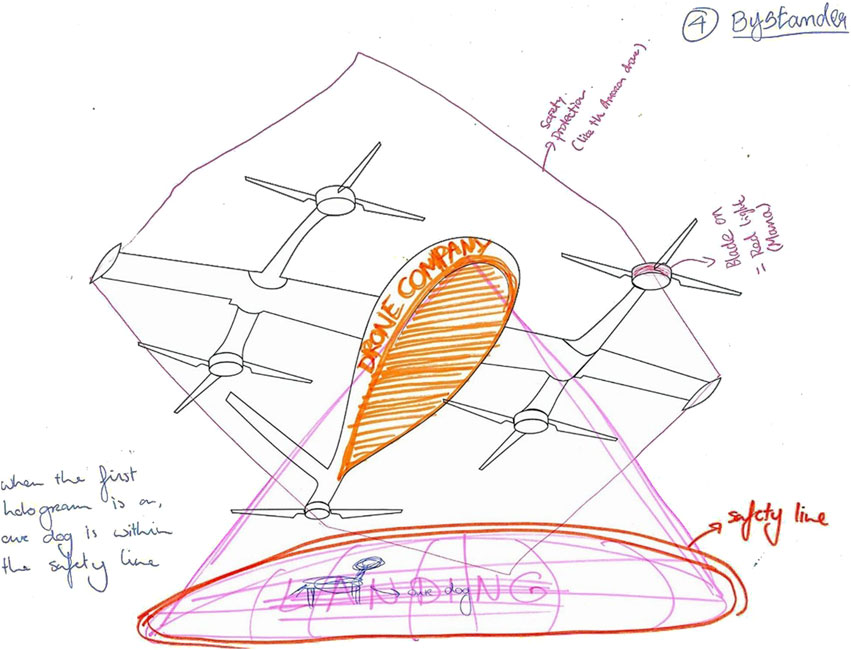 ④ Bystander
Safety
Protection
(like the Amazon drone)
Blade on
= Red light
(Mana)
DRONE COMPANY
when the first
hologram is on,
one dog is within
the safety line
safety line
LANDING
one dog